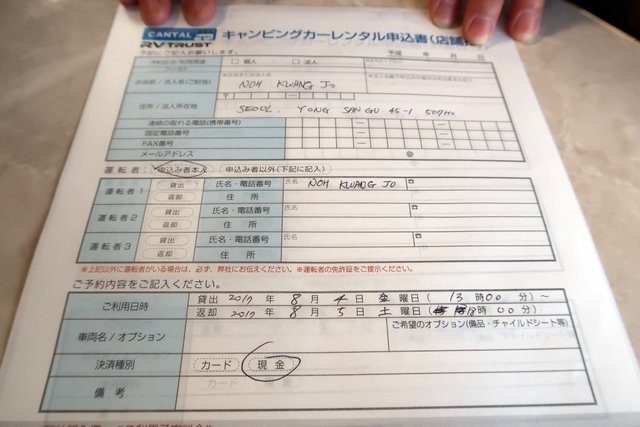 CANTAL
RVTRUST
キャンピングカーレンタル申込書(店舗
下記にご記入お願いします。
平成 年 月 日
個人・ 法人
お名前/法人名(ご担当) NOH KWANG JO
〒
住所/法人所在地 SEOUL. YONG SAN GU 45-1
連絡の取れる電話(携帯番号)
固定電話番号
FAX番号
メールアドレス @
運転者: 申込み者本人 申込み者以外(下記に記入)
運転者1 貸出 氏名・電話番号 氏名 NOH KWANG JO ☎
返却 住所
運転者2 貸出 氏名・電話番号 氏名 ☎
返却 住所
運転者3 貸出 氏名・電話番号 氏名 ☎
返却 住所
※上記以外に運転者がいる場合は、必ず、弊社にお伝えください。※運転者の免許証をご提示ください。
ご予約内容をご記入ください。
ご利用日時 貸出 2017年 8月 4日 金曜日(13時00分)~
返却 2017年 8月 5日 土曜日( 18時00分)
車両名/オプション ご希望のオプション(備品・チャイルドシート等)
決済種別 カード 現金
備考